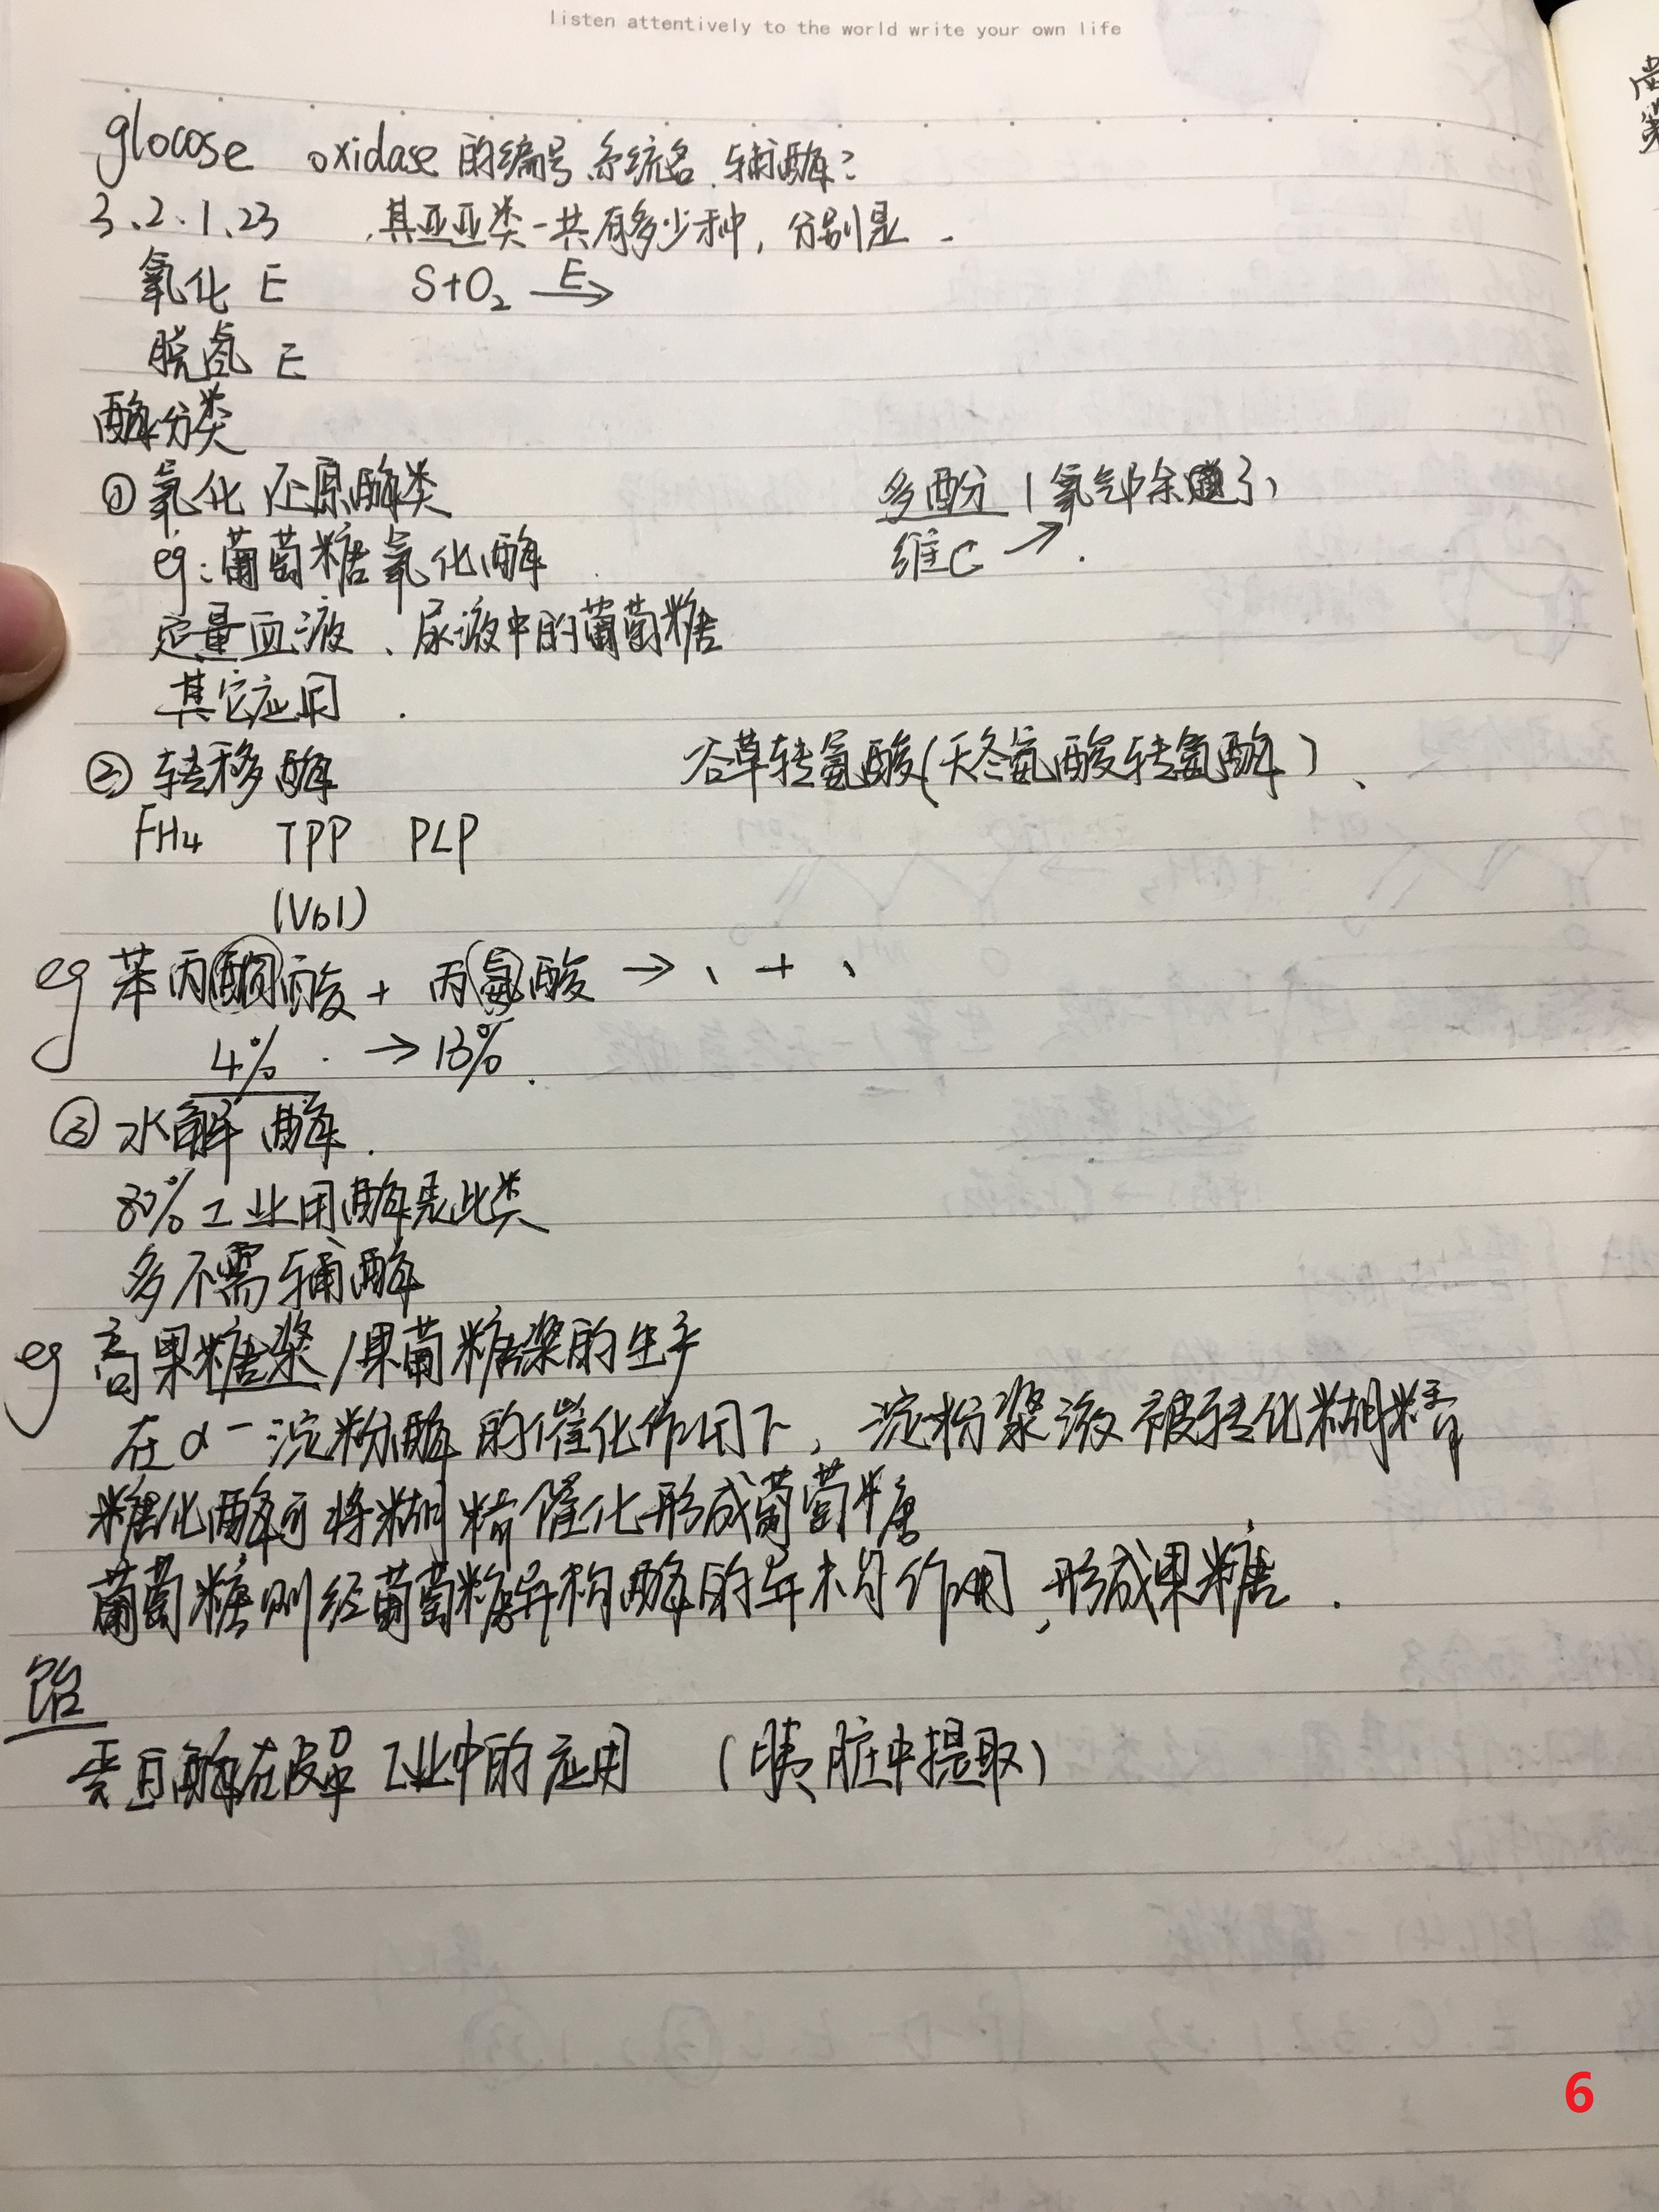 listen attentively to the world write your own life
glocose oxidase 的编号、系统名、辅酶?
3.2.1.23 ,其亚亚类一共有多少种,分别是
氧化 E S+O₂ —E→
脱氢 E
酶分类
① 氧化还原酶类 多酚 氧气
eg:葡萄糖氧化酶 维C ↗
定量血液、尿液中的葡萄糖
其它应用
② 转移酶 谷草转氨酸(天冬氨酸转氨酶)、
FH4 TPP PLP
(Vb1)
eg 苯丙酮酸 + 丙氨酸 → 、 + 、
4% → 13%
③ 水解酶.
80%工业用酶是此类
多不需辅酶
eg 高果糖浆/果葡糖浆的生产
在α-淀粉酶的催化作用下,淀粉浆液被转化糊精
糖化酶可将糊精催化形成葡萄糖
葡萄糖则经葡萄糖异构酶的异构作用,形成果糖.
饴
蛋白酶在皮革工业中的应用 (胰脏中提取)
6